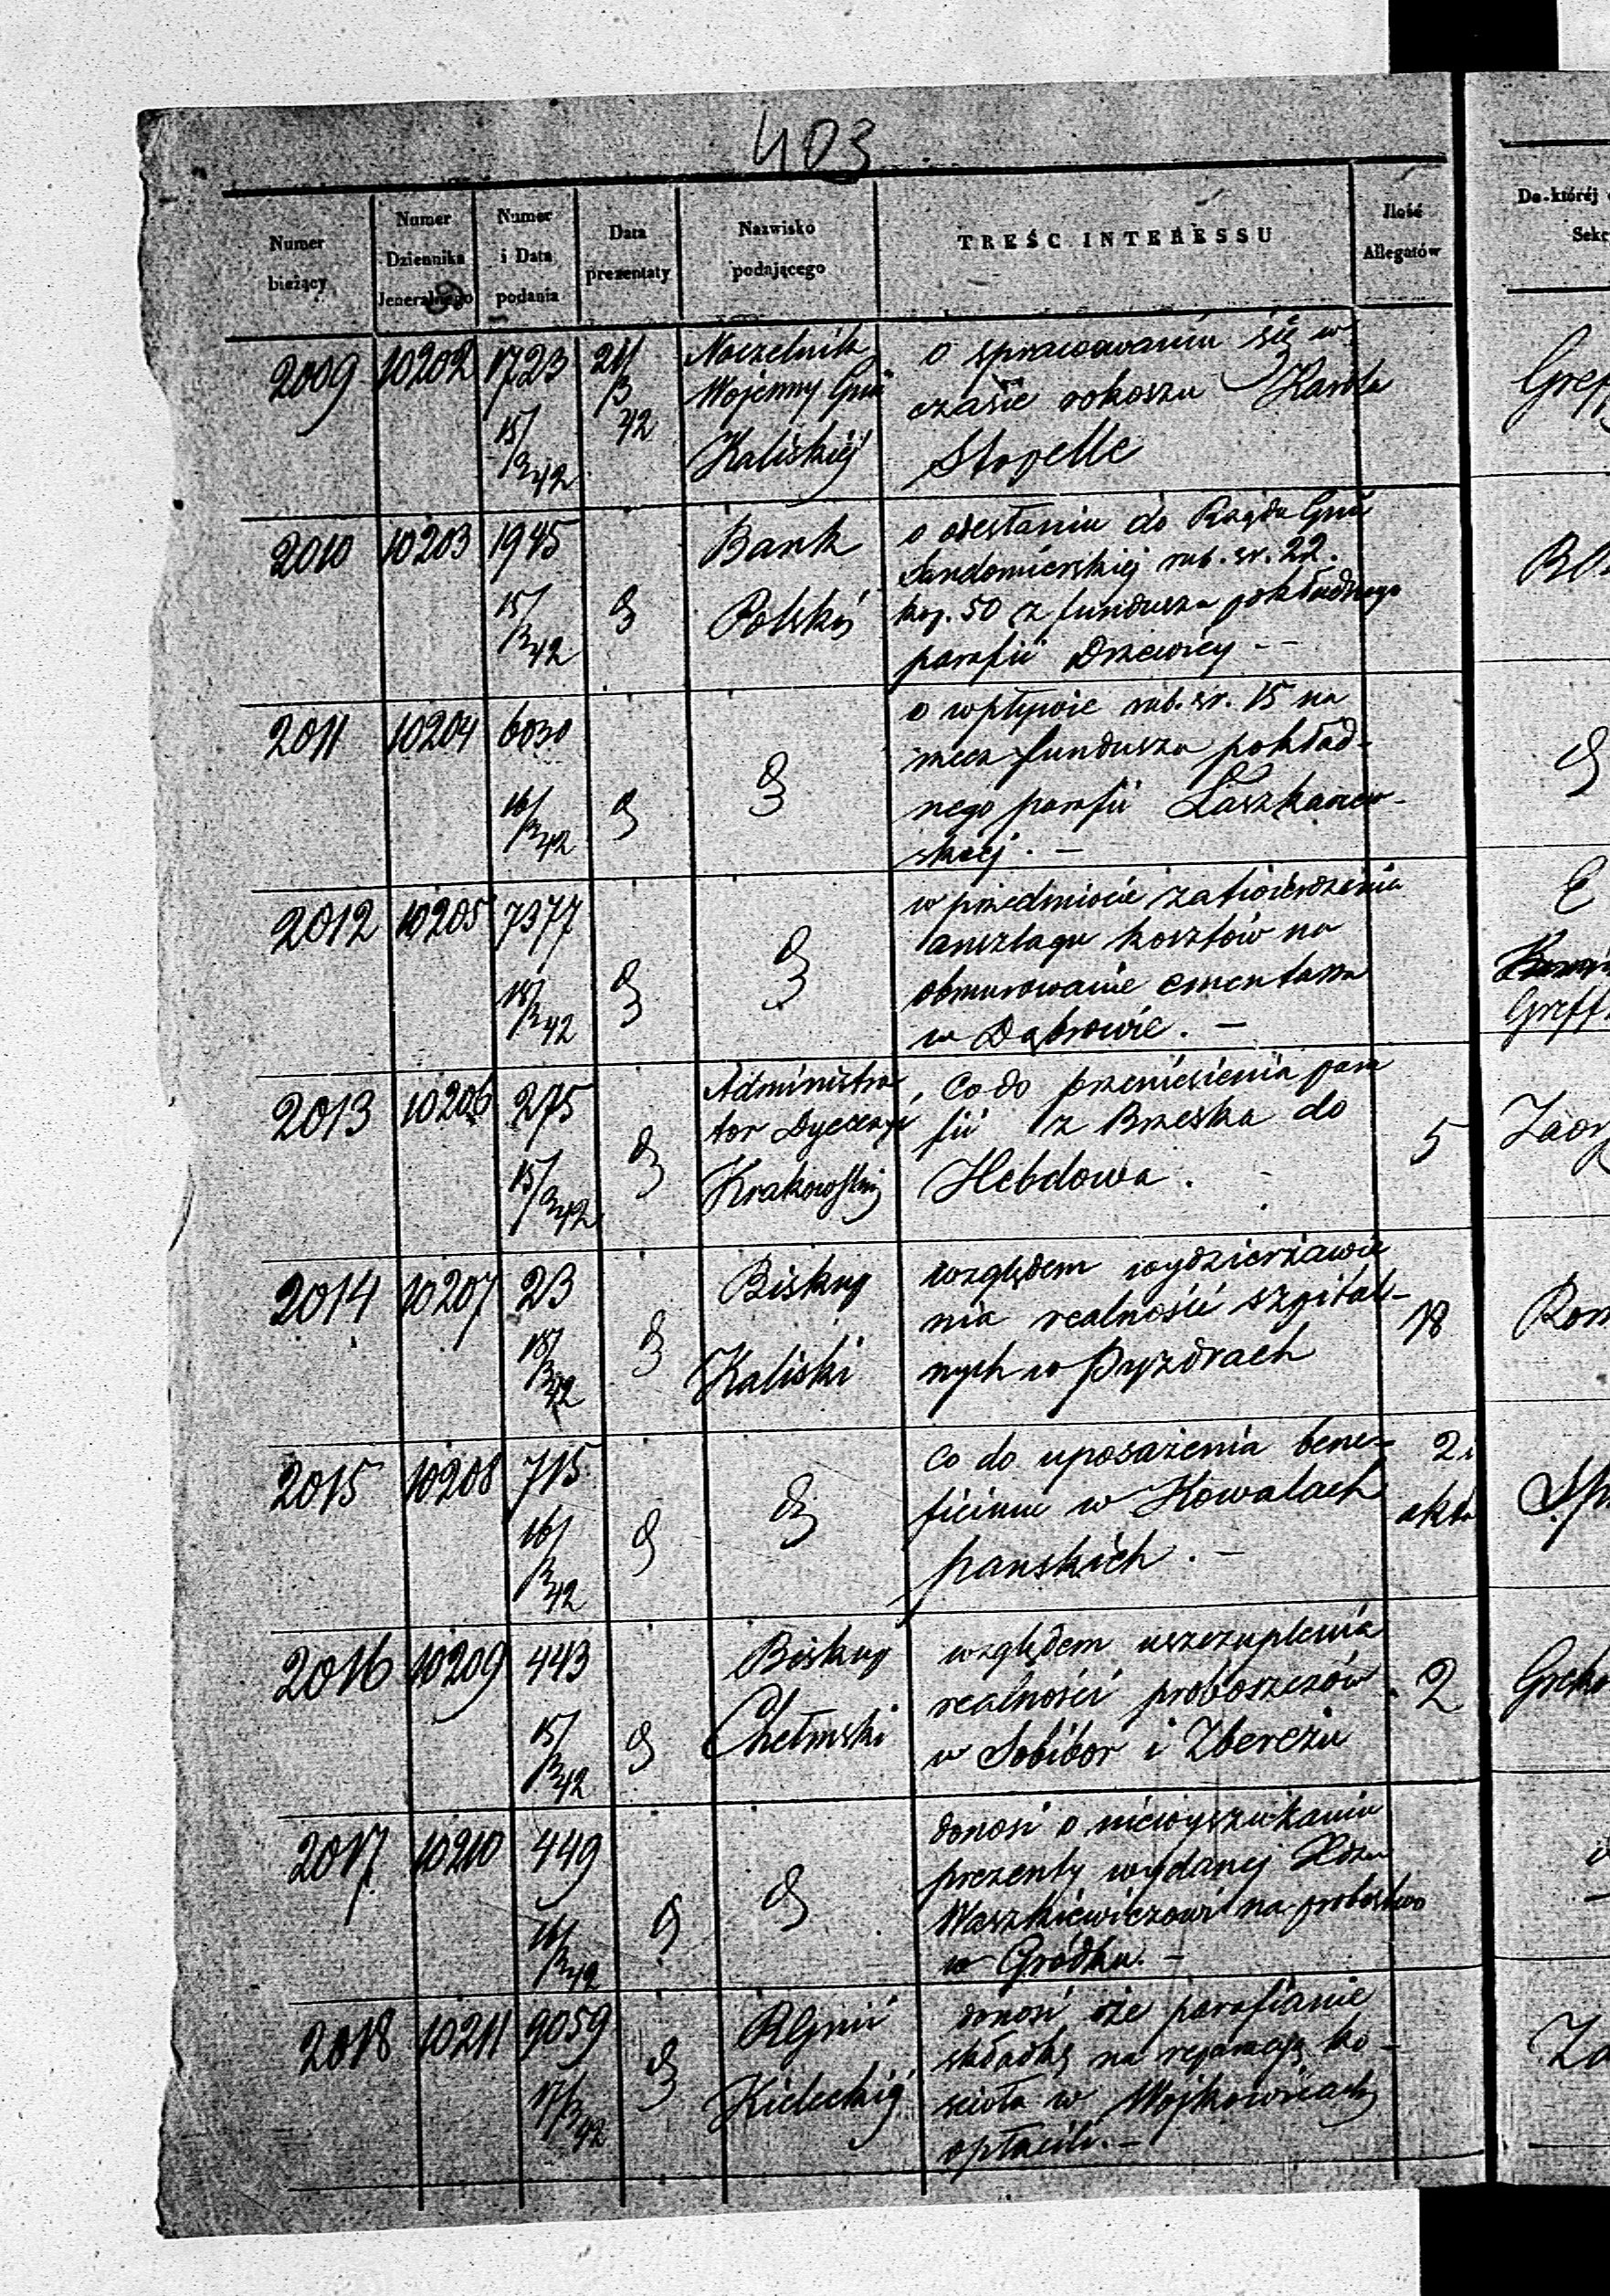 403
Numer bieżący
Numer Dziennika Jeneralnego
Numer i Data podania
Data prezentaty
Nazwisko podającego
TREŚC INTERESSU
Ilość Allegatów
Do której
Sekr
2009 10202 1723 15/3 42 21/3 42
Naczelnik
Wojenny Gnii
Kaliskiéj
o sprawowaniu się w
czasie rokoszu Karola
Stopelle
Greff
2010 10203 1945 15/3 42
Bank
Polski
o odesłaniu do Rządu Gnii
Sandomierskiej rub. sr. 22.
kop. 50 z funduszu pokładnego
parafii Drzewicy. —
2011 10204 6030 16/3 42
o wpływie rub. sr. 15 na
rzecz funduszu pokład-
nego parafii
skiej. —
2012 10205 7377 18/3 42
w przedmiocie zatwierdzenia
anszlagu kosztów na
obmurowanie cmentarza
w Dąbrowie. —
Greff
2013 10206 275 15/3 42
Administra
tor Dyecezyi
Krakowskiej
Co do przeniesienia para
fii z Brzeska do
Hebdowa.
5
2014 10207 23 18/3 42
Biskup
Kaliski
względem wydzierżawie
nia realności szpital-
nych w Pyzdrach
18
Rom
2015 10208 715 16/3 42
Co do uposażenia bene-
ficium w Kowalach
panskich. —
2 i
akta
2016 10209 443 15/3 42
Biskup
Chełmski
względem uszczuplenia
realności proboszczów
w Sobibor i Zbereżu
2
2017 10210 449 16/3 42
donosi o niewyszukaniu
prezenty wydanej Xdzu
Waszkiewiczowi na probostwo
w Gródku. —
2018 10211 9059 17/3 42
RGnii
Kieleckiej
donosi że parafianie
składkę na reparacyą ko-
scioła w Wojkowicach
opłacili. —